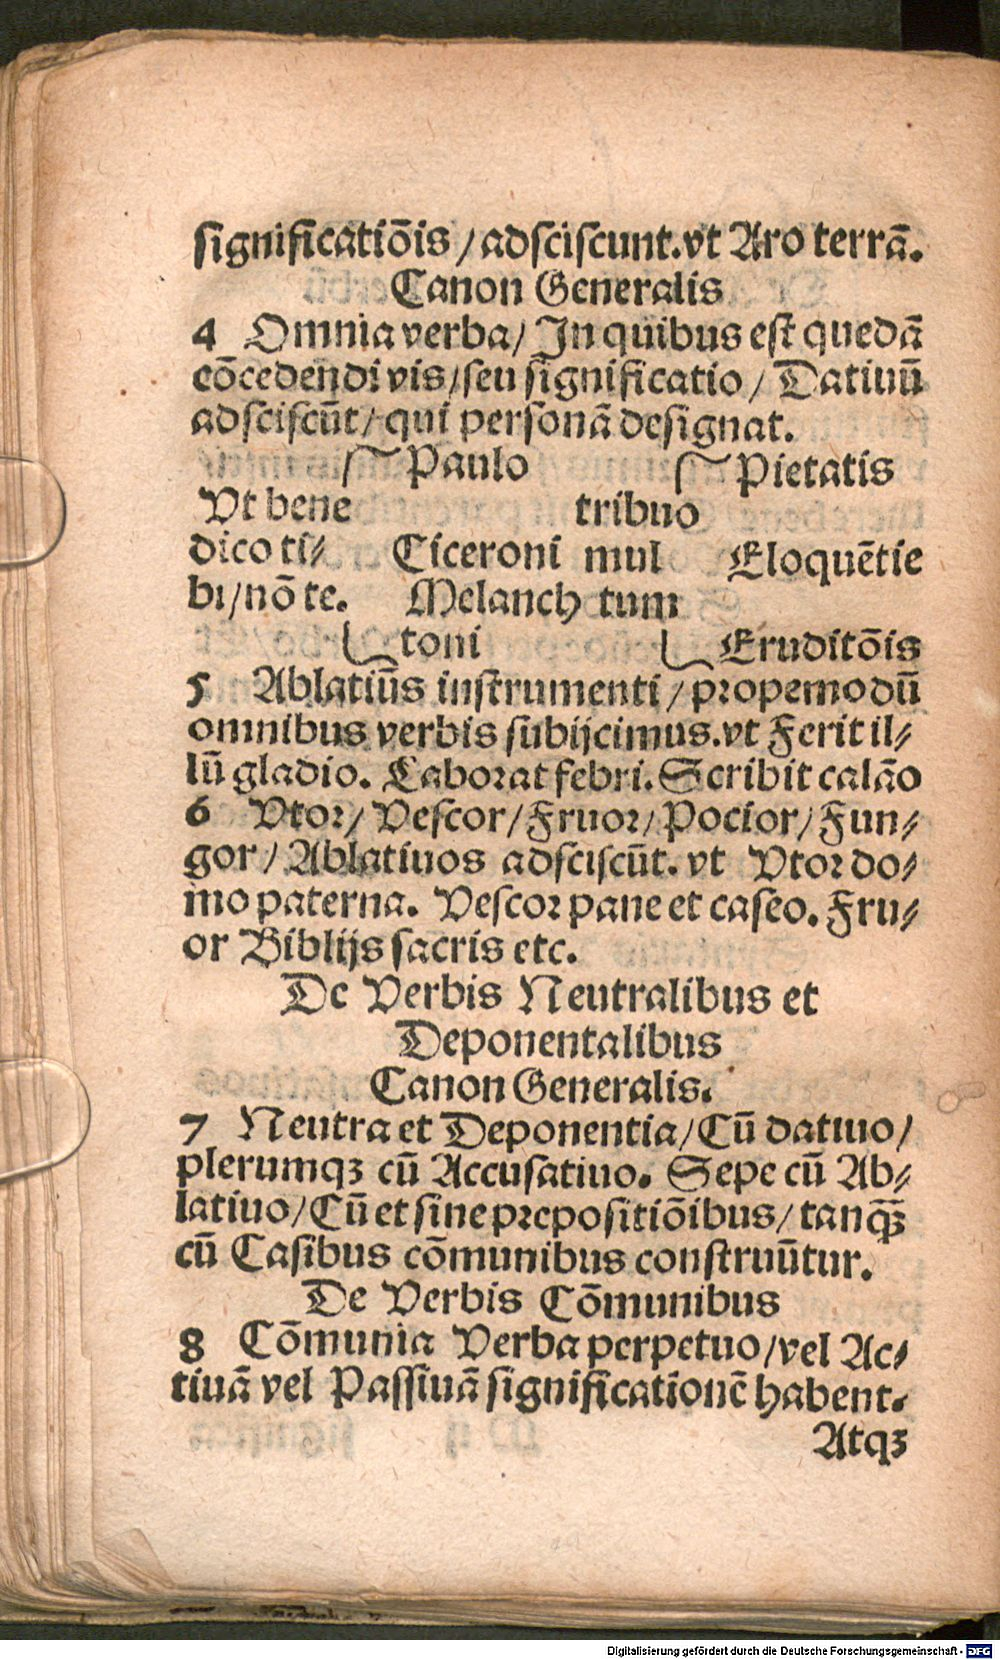 significatiōis / adsciscunt. vt Aro terrā.
Canon Generalis
4 Omnia verba / In quibus est quedā
cōcedendi vis / seu significatio / Datiuū
adsciscūt / qui personā designat.
Paulo Pietatis
Vt bene tribuo
dico ti⸗ Ciceroni mul Eloquētie
bi / nō te. Melanch tum
toni Eruditōis
5 Ablatiūs instrumenti / propemodū
omnibus verbis subijcimus. vt Ferit il⸗
lū gladio. Laborat febri. Scribit calāo
6 Vtor / Vescor / Fruor / Pocior / Fun⸗
gor / Ablatiuos adsciscūt. vt Vtor do⸗
mo paterna. Vescor pane et caseo. Fru⸗
or Biblijs sacris etc.
De Verbis Neutralibus et
Deponentalibus
Canon Generalis.
7 Neutra et Deponentia / Cū datiuo /
plerumqꝫ cū Accusatiuo. Sepe cū Ab⸗
latiuo / Cū et sine prepositiōibus / tanq̄ꝫ
cū Casibus cōmunibus construūtur.
De Verbis Cōmunibus
8 Cōmunia Verba perpetuo / vel Ac⸗
tiuā vel Passiuā significationē habent.
Atqꝫ
Digitalisierung gefördert durch die Deutsche Forschungsgemeinschaft - DFG